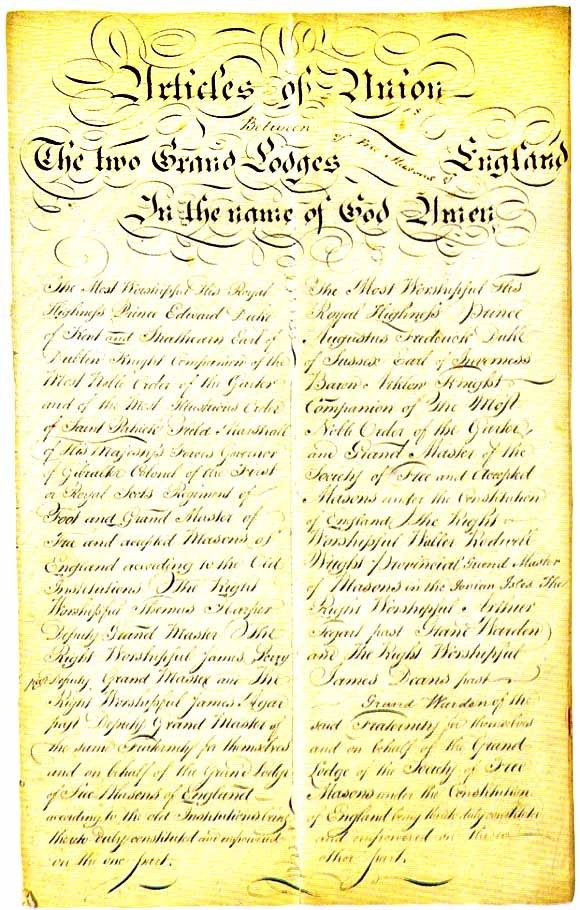 Articles of Union
Between
The two Grand Lodges of Free Masons of England
In the name of God Amen
The Most Worshipful His Royal
Highness Prince Edward Duke
of Kent and Strathearn Earl of
Dublin Knight Companion of the
Most Noble Order of the Garter
and of the Most Illustrious Order
of Saint Patrick Field Marshall
of His Majestys Forces Governor
of Gibraltar Colonel of the First
or Royal Scots Regiment of
Foot and Grand Master of
Free and accepted Masons of
England according to the Old
Institutions The Right
Worshipful Thomas Harper
Deputy Grand Master The
Right Worshipful James Perry
Past Deputy Grand Master and The
Right Worshipful James Agar
past Deputy Grand Master of
the same Fraternity for themselves
and on behalf of the Grand Lodge
of Free Masons of England
according to the old Institutions being
thereto duly constituted and empowered
on the one part.
The Most Worshipful His
Royal Highness Prince
Augustus Frederick Duke
of Sussex Earl of Inverness
Baron Arklow Knight
Companion of the Most
Noble Order of the Garter
and Grand Master of the
Society of Free and Accepted
Masons under the Constitution
of England, The Right
Worshipful Waller Rodwell
Wright Provincial Grand Master
of Masons in the Ionian Isles The
Right Worshipful Arthur
Tegart past Grand Warden
and The Right Worshipful
James Deans past
Grand Warden of the
said Fraternity for themselves
and on behalf of the Grand
Lodge of the Society of Free
Masons under the Constitution
of England being thereto duly constituted
and empowered on the
other part.